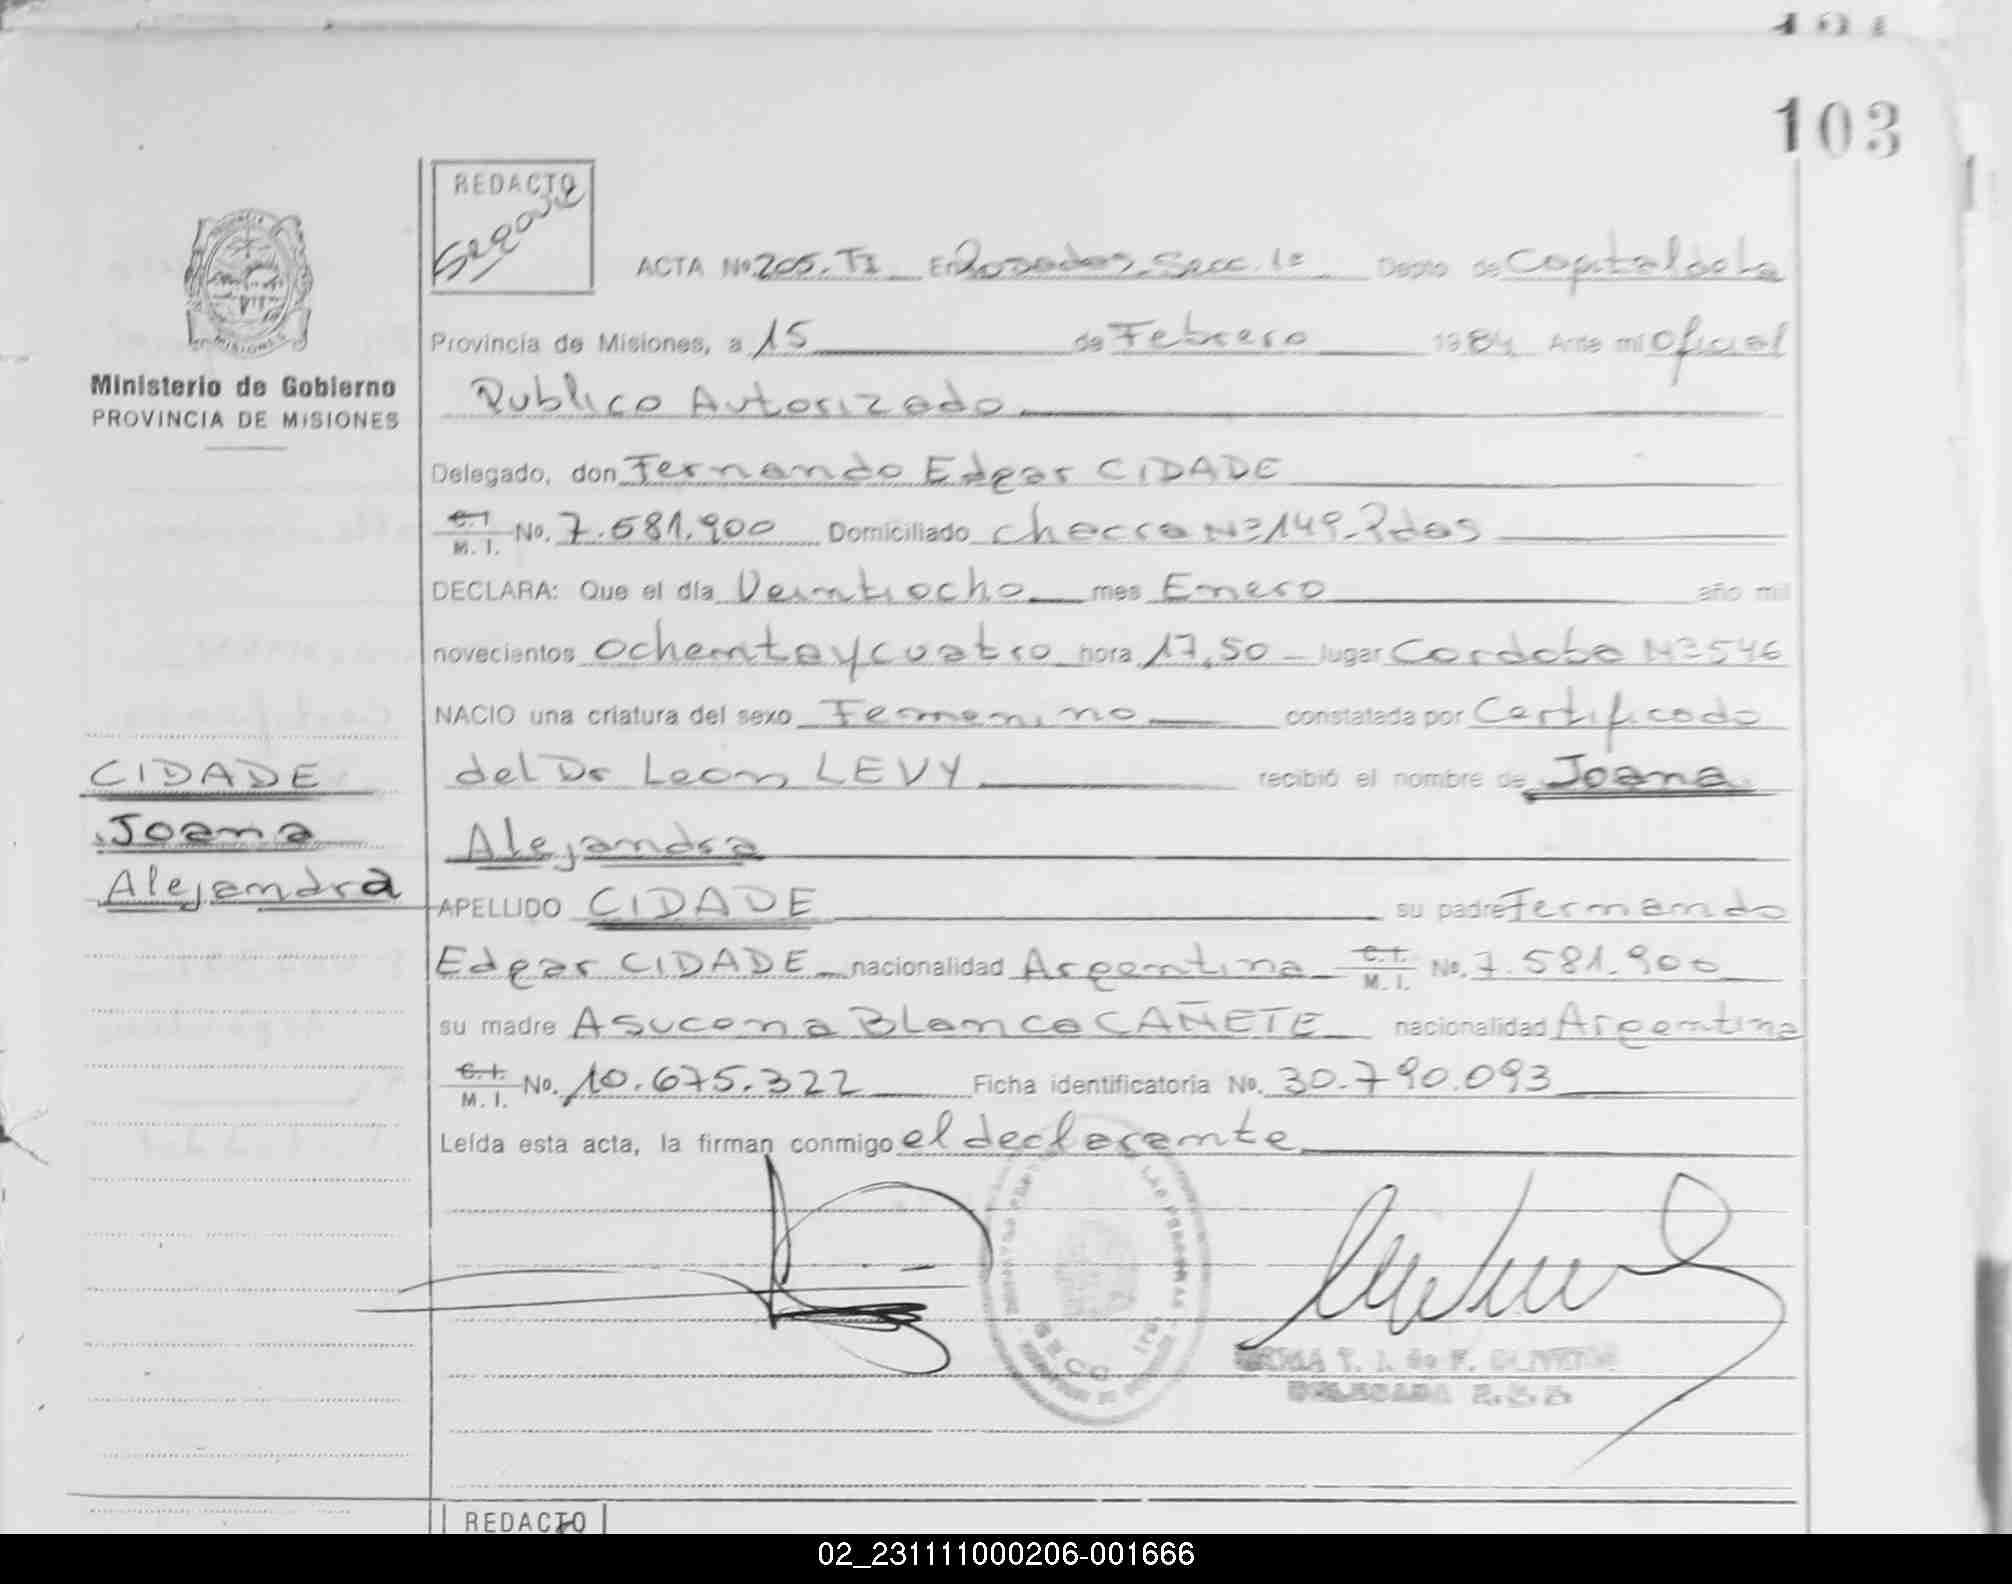 103
REDACTO
ACTA No. 205. TI En Posadas, Secc. 1ª Depto de Capital de la
Provincia de Misiones, a 15 de Febrero 1984 Ante mi Oficial
Publico Autorizado
Ministerio de Gobierno
PROVINCIA DE MISIONES
Delegado, don Fernando Edgar CIDADE
C.I. M. I. No. 7.581.900 Domiciliado Chacra Nº 149-Pdas
DECLARA: Que el día Veintiocho mes Enero año mil
novecientos ochenta y cuatro hora 17,50 - lugar Cordoba Nº 546
NACIO una criatura del sexo Femenino constatada por Certificado
del Dr Leon LEVY recibió el nombre de Joana
Alejandra
CIDADE
Joana
Alejandra
APELLIDO CIDADE su padre Fernando
Edgar CIDADE nacionalidad Argentina C.I. M. I. No. 7.581.900
su madre Asucena Blanca CAÑETE nacionalidad Argentina
C.I. M. I. No. 10.675.322 Ficha identificatoria No. 30.790.093
Leída esta acta, la firman conmigo el declarante
SECC
REDACTO
02_231111000206-001666